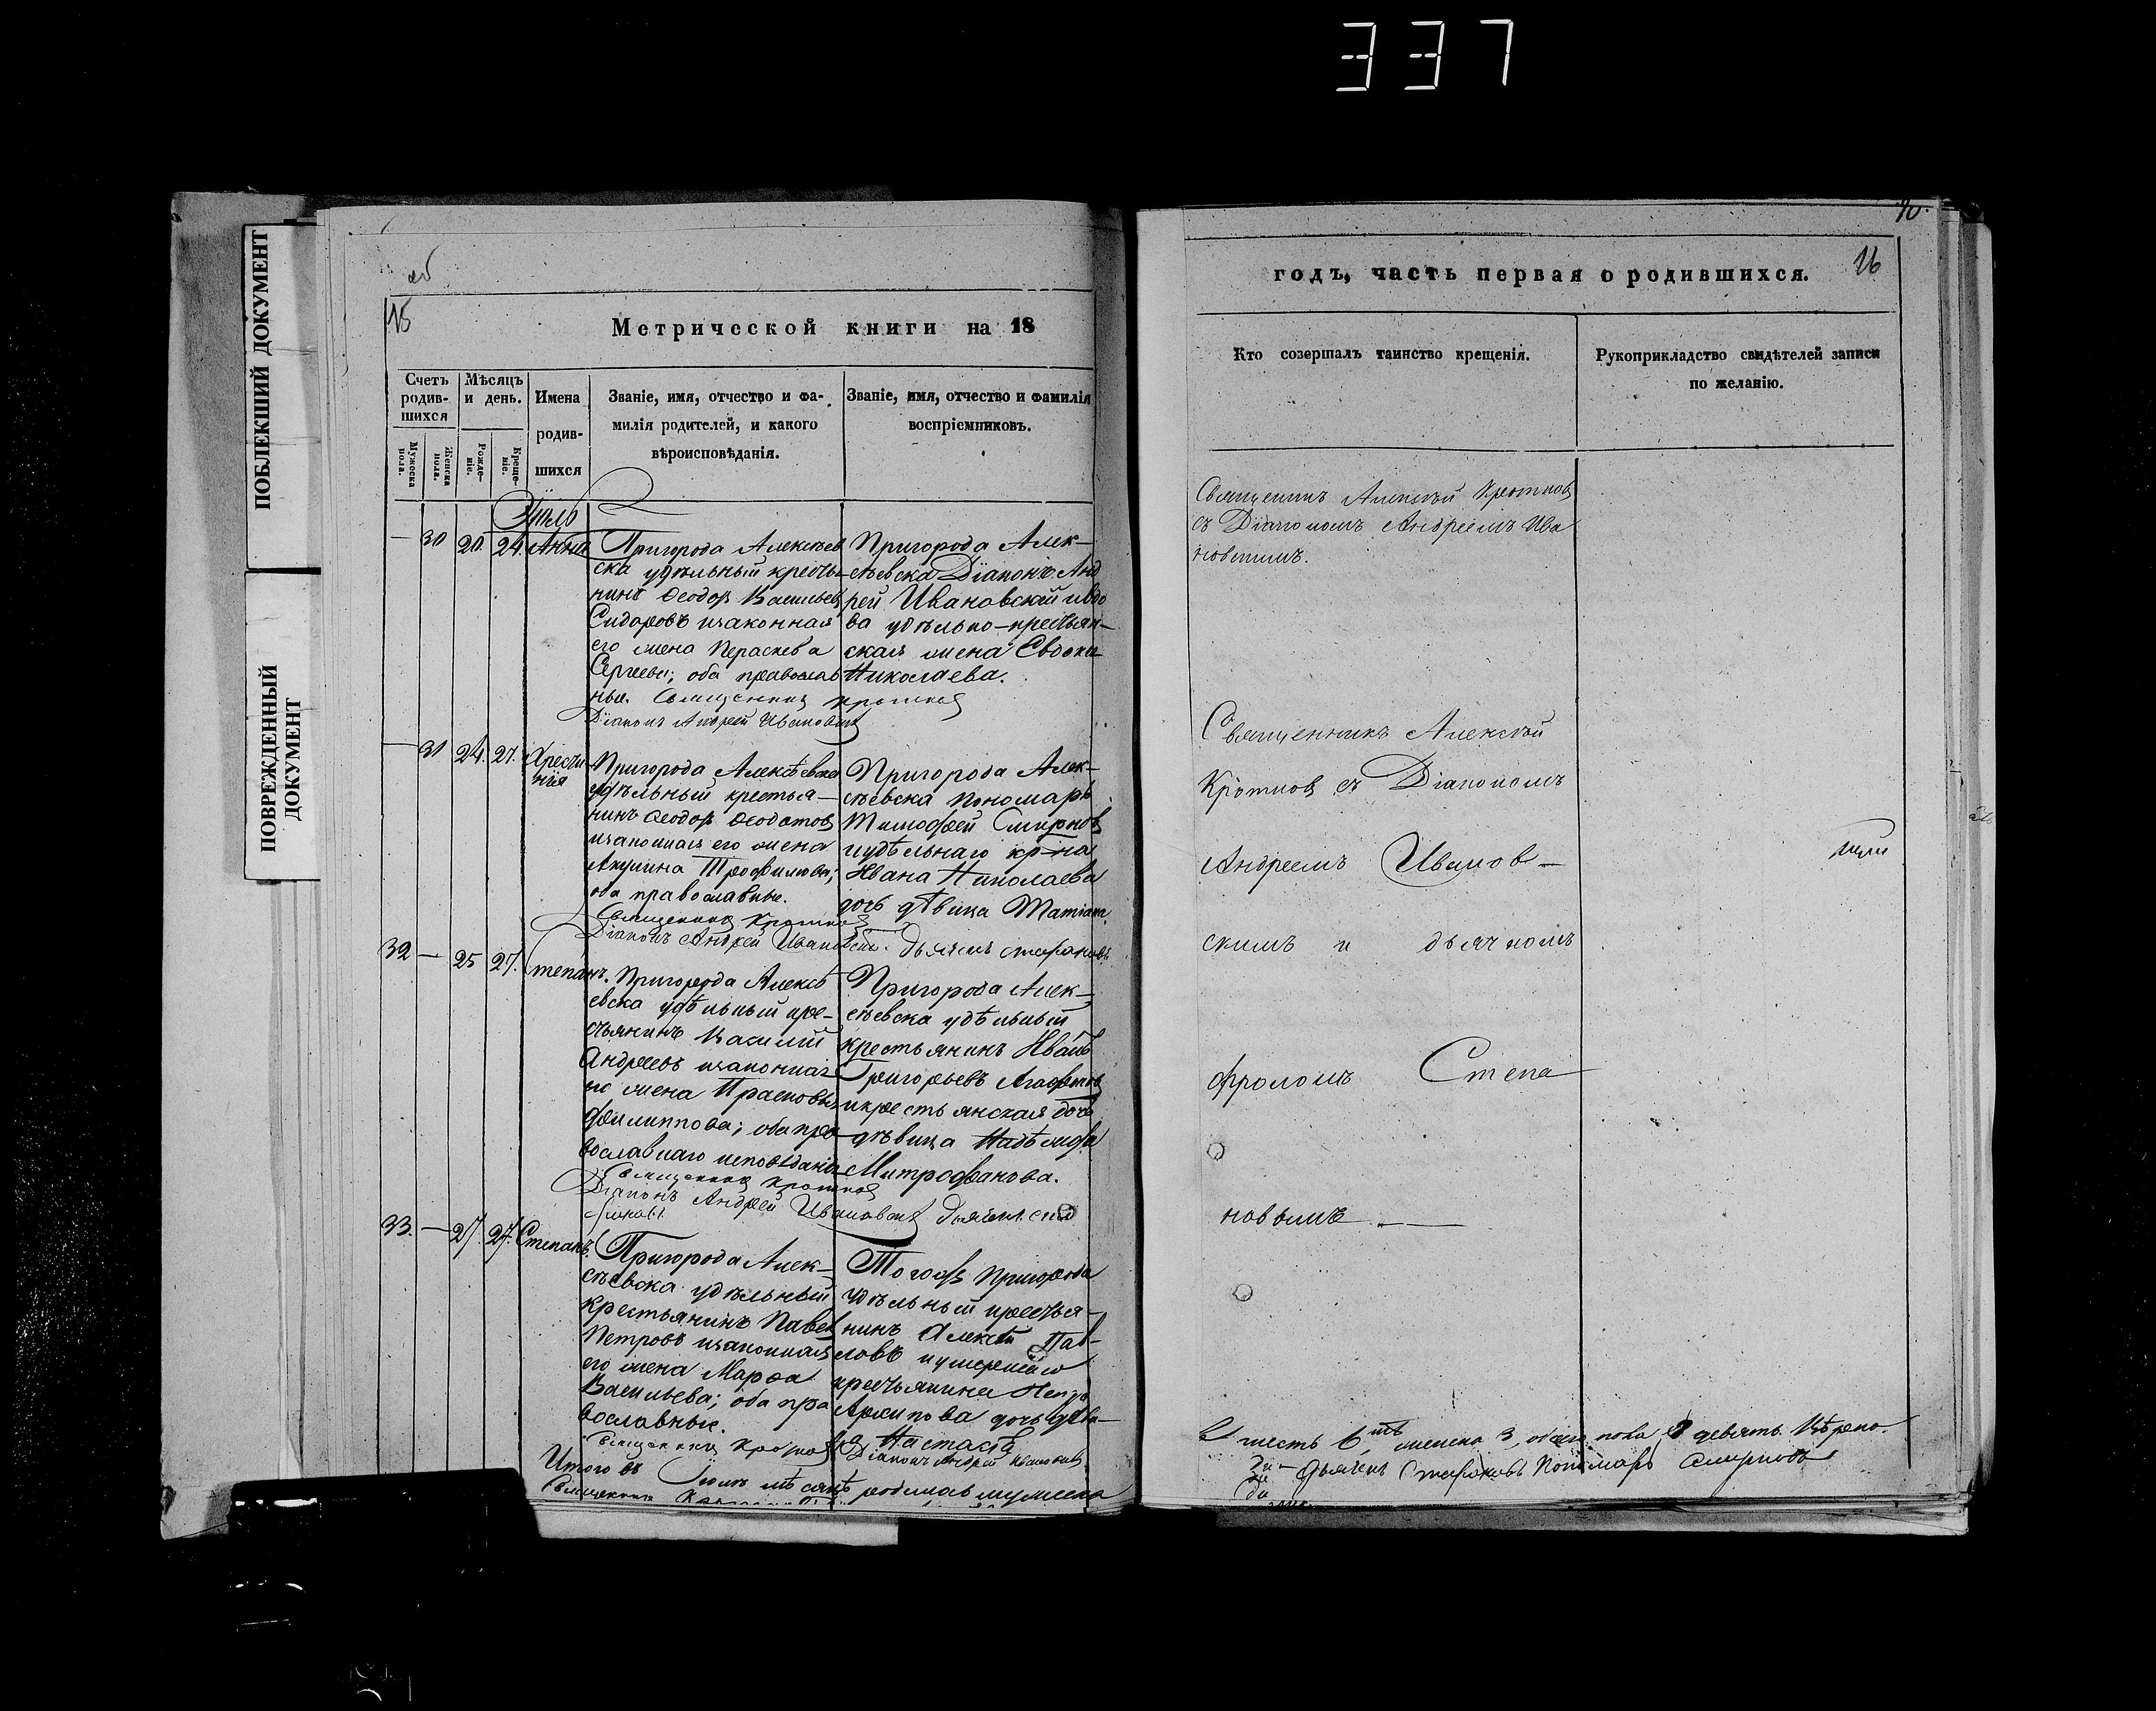 337
ПОБЛЕКШИЙ ДОКУМЕНТ
ПОВРЕЖДЕННЫЙ
ДОКУМЕНТ
15
Метрической книги на 18
Счетъ
родив-
шихся
Мужеска
пола.
Женска
пола.
Мѣсяцъ
и день.
Рожде-
ніе.
Креще-
ніе.
Имена
родив-
шихся
Званіе, имя, отчество и фа-
милія родителей, и какого
вѣроисповѣданія.
Званіе, имя, отчество и фамилія
воспріемниковъ.
Іюль
— 30 20. 24. Анна
Пригорода Алексѣев
ска удѣльный кресть
нинъ Ѳеодоръ Васильевъ
Сидоровъ изаконная
его жена Параскева
Сергеева; оба православ
ные. Священникъ Кротковъ
Діаконъ Андрей Ивановскій
Пригорода Алек-
сѣевска Діаконъ Анд
рей Ивановскій ивдо
ва удѣльно-крестьян-
ская жена Евдокія
Николаева.
— 31 24. 27.
Пригорода Алексѣевска
удѣльный крестья-
нинъ Ѳеодоръ Ѳеодотовъ
изаконная его жена
Акулина Трофимова;
оба православные.
Священникъ Кротковъ
Діаконъ Андрей Ивановскій. Дьячекъ Стефановъ
Пригорода Алек-
сѣевска Пономарь
Тимофей Смирновъ
иудѣльнаго кр-на
Ивана Николаева
дочь дѣвица Татіана.
32 — 25 27. Степанъ.
Пригорода Алексѣ
евска удѣльный кре-
стьянинъ Василій
Андреевъ изаконная
его жена Прасковья
Филиппова; оба пра
вославнаго исповѣданія
Священникъ Кротковъ
Діаконъ Андрей Ивановскій Дьячекъ
Пригорода Алек-
сѣевска удѣльный
крестьянинъ Иванъ
Григорьевъ Агафоновъ
икрестьянская дочь
дѣвица Надѣжда
Митрофанова.
33. — 27. 27. Степанъ.
Пригорода Алек-
сѣевска удѣльный
крестьянинъ Павелъ
Петровъ изаконная
его жена Марѳа
Васильева; оба пра
вославные.
Священникъ Кротковъ
Діаконъ Андрей Ивановскій
Тогожъ Пригорода
удѣльный крестья-
нинъ Алексѣй Пав-
ловъ иумершаго
крестьянина Петра
Архипова дочь дѣви-
ца Настасія
Итого въ Іюлѣ мѣсяцѣ родилось мужеска
Священникъ
годъ, часть первая о родившихся.
16
Кто созершалъ таинство крещенія.
Рукоприкладство свидѣтелей записи
по желанію.
Священникъ Алексѣй Кротковъ
съ Діакономъ Андреемъ Ива
новскимъ.
Священникъ Алексѣй
Кротковъ съ Діакономъ
Андреемъ Иванов-
скимъ и дьячкомъ
Фроломъ Стефа
новымъ —
шесть 6, женска 3, обаего пола девять. Вѣрно.
Дьячекъ Стефановъ Пономарь Смирновъ